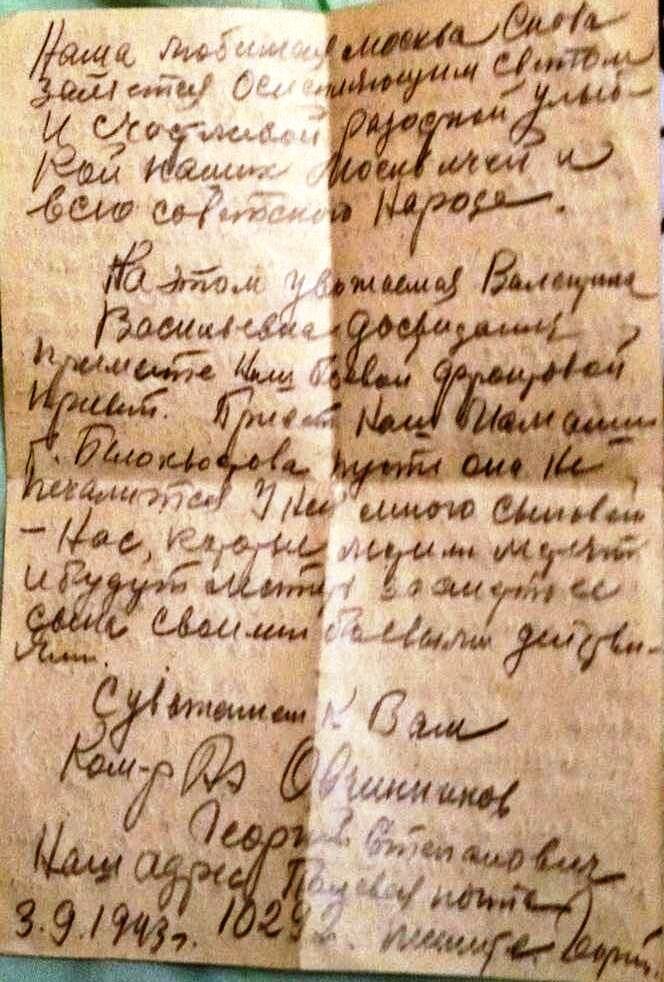 Наша любимая москва Снова
займется Осиспяющим светом
И Счастливой радостной улыб-
кой наших Москвичей и
всего советского Народа.
На этом уважаемая Валентина
Васильевна досвидания
примите Наш боевой фронтовой
привет. Привет Наш Мамаши
Т. Белокысова пусть она Не
печалится У Ней много сыновей
- Нас, которые мстили мстят
и будут мстить за смерть ее
сына своими боевыми действи-
ями.
С уважением к Вам
Ком-р Овчинников
Георгий Степанович
Наш адрес Полевая почта
3.9.1943г. 10292. пишите.